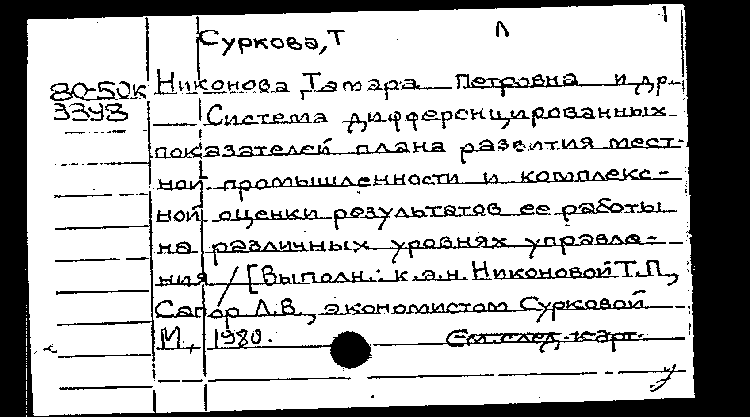 Суркова, Т Л 1
80-50к Никонова Тамара Петровна и др.
3343 Система дифференцированных
показателей плана развития мест-
ной промышленности и комплекс-
ной оценки результатов ее работы
на различных уровнях управле-
ния / [Выполн.: к.э.н. Никоновой Т.П.,
Сапор Л.В., экономистом Сурковой
М, 1980. См. след. карт.
у